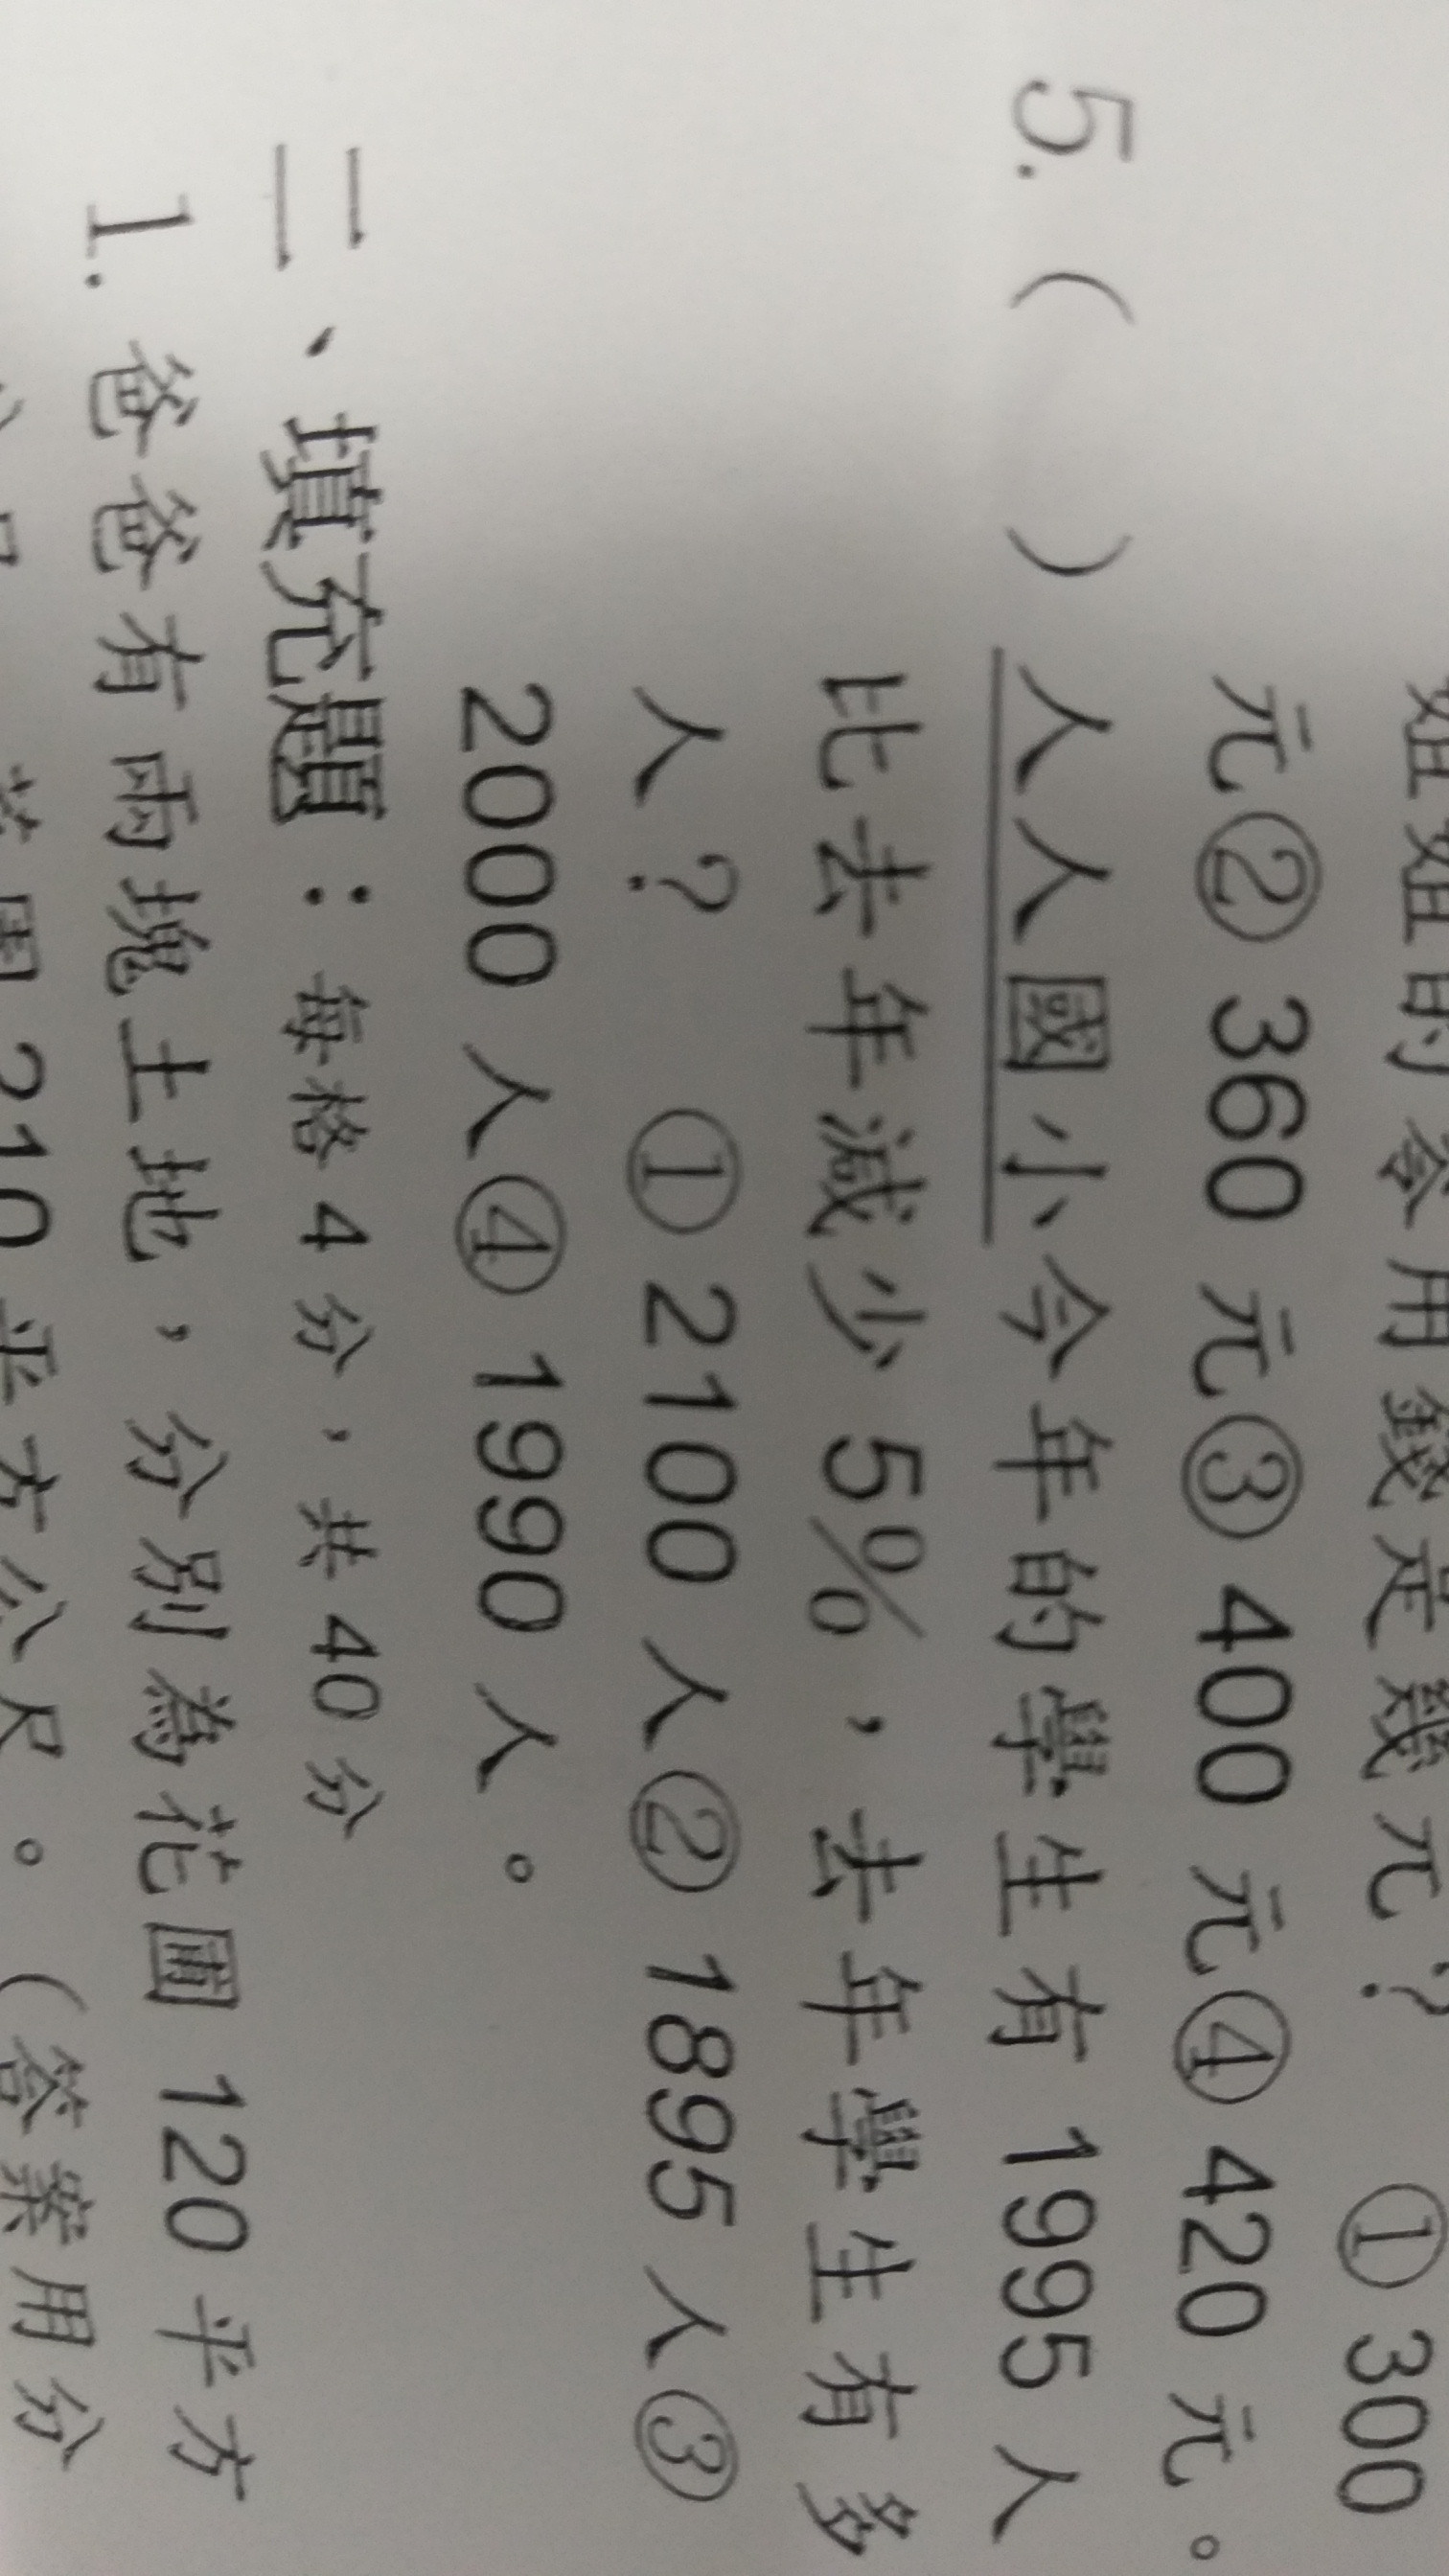 姐姐的零用錢是幾元？ ①300
元②360 元③400 元④420 元。
5.（ ）人人國小今年的學生有 1995 人
比去年減少 5%，去年學生有多
人？ ①2100 人②1895 人③
2000 人④1990 人。
二、填充題：每格 4 分，共 40 分
1. 爸爸有兩塊土地，分別為花圃 120 平方
210 平方公尺。（答案用分